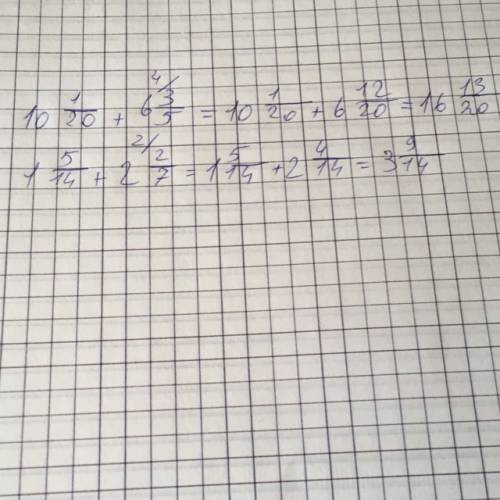 10 1/20 + 6 3/5 ⁴⁄ = 10 1/20 + 6 12/20 = 16 13/20
1 5/14 + 2 2/7 ²⁄ = 1 5/14 + 2 4/14 = 3 9/14